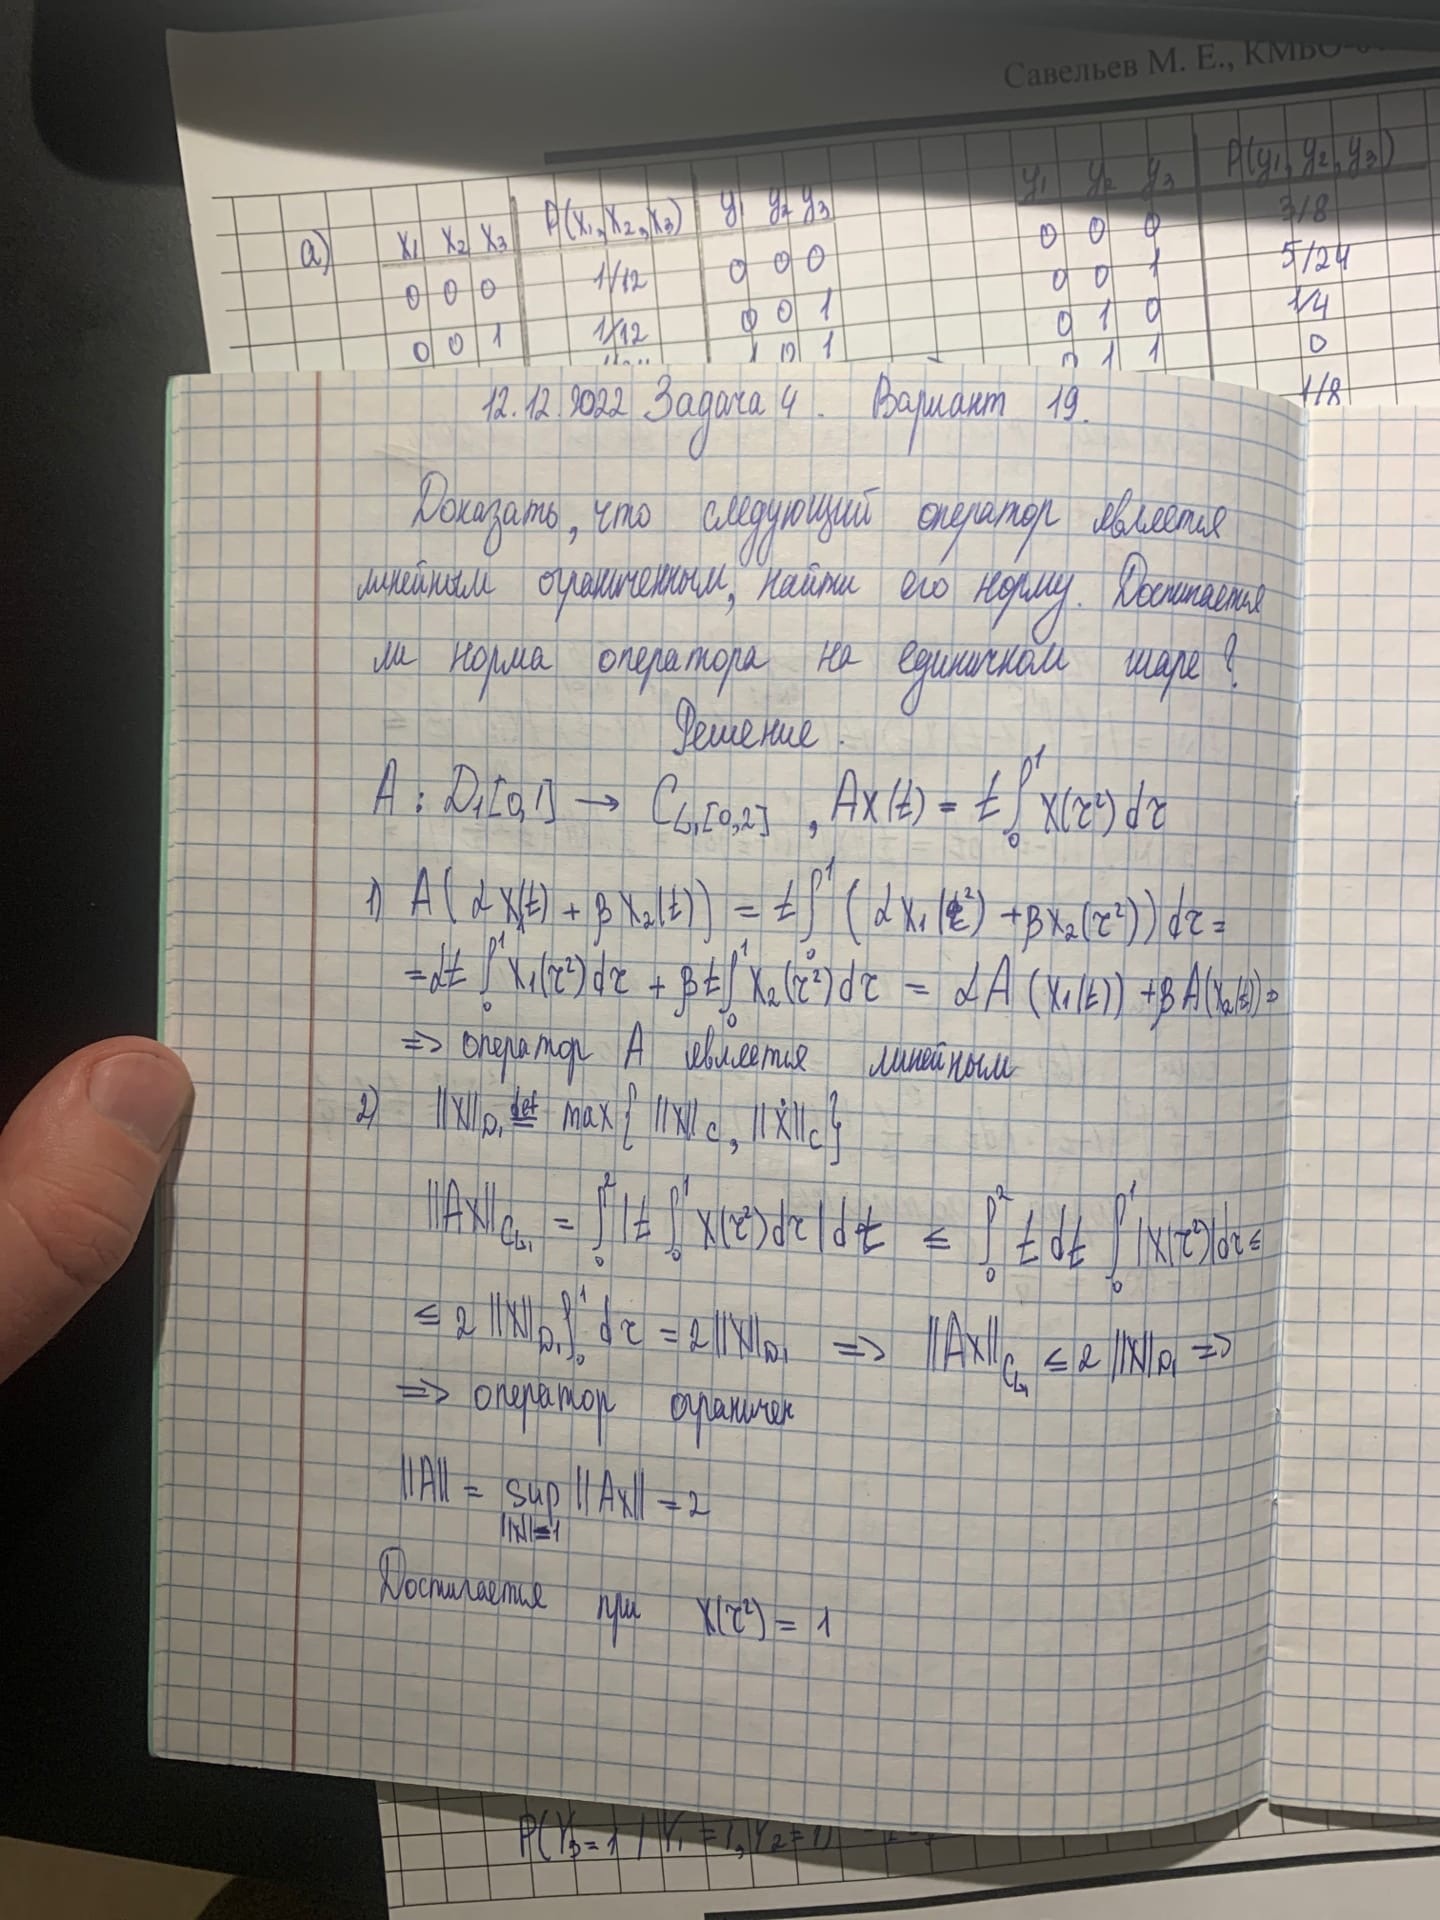 Савельев М. Е., КМБО-0
a) x₁ x₂ x₃ P(x₁,x₂,x₃) y₁ y₂ y₃ y₁ y₂ y₃ P(y₁,y₂,y₃)
0 0 0 1/12 0 0 0 0 0 0 3/8
0 0 1 1/12 0 0 1 0 0 1 5/24
1 0 1 0 1 0 1/4
0 1 1 0
1/8
12.12.2022 Задача 4. Вариант 19.
Доказать, что следующий оператор является
линейным ограниченным, найти его норму. Достигается
ли норма оператора на единичном шаре?
Решение.
A : D₁[0,1] → C_{L₁[0,2]}, Ax(t) = t∫₀¹ x(τ²)dτ
1) A(αx(t) + βx₂(t)) = t∫₀¹ (αx₁(τ²) + βx₂(τ²))dτ =
= αt∫₀¹ x₁(τ²)dτ + βt∫₀¹ x₂(τ²)dτ = αA(x₁(t)) + βA(x₂(t)) ⇒
⇒ оператор A является линейным
2) ||x||_{D₁} ≝ max{||x||_C, ||ẋ||_C}
||Ax||_{C_{L₁}} = ∫₀² |t∫₀¹ x(τ²)dτ|dt ≤ ∫₀² t dt ∫₀¹ |x(τ²)|dτ ≤
≤ 2||x||_{D₁}∫₀¹ dτ = 2||x||_{D₁} ⇒ ||Ax||_{C_{L₁}} ≤ 2||x||_{D₁} ⇒
⇒ оператор ограничен
||A|| = sup_{||x||=1} ||Ax|| = 2
Достигается при x(τ²) = 1
P(Y₃=1 / Y₁=1, Y₂=1)